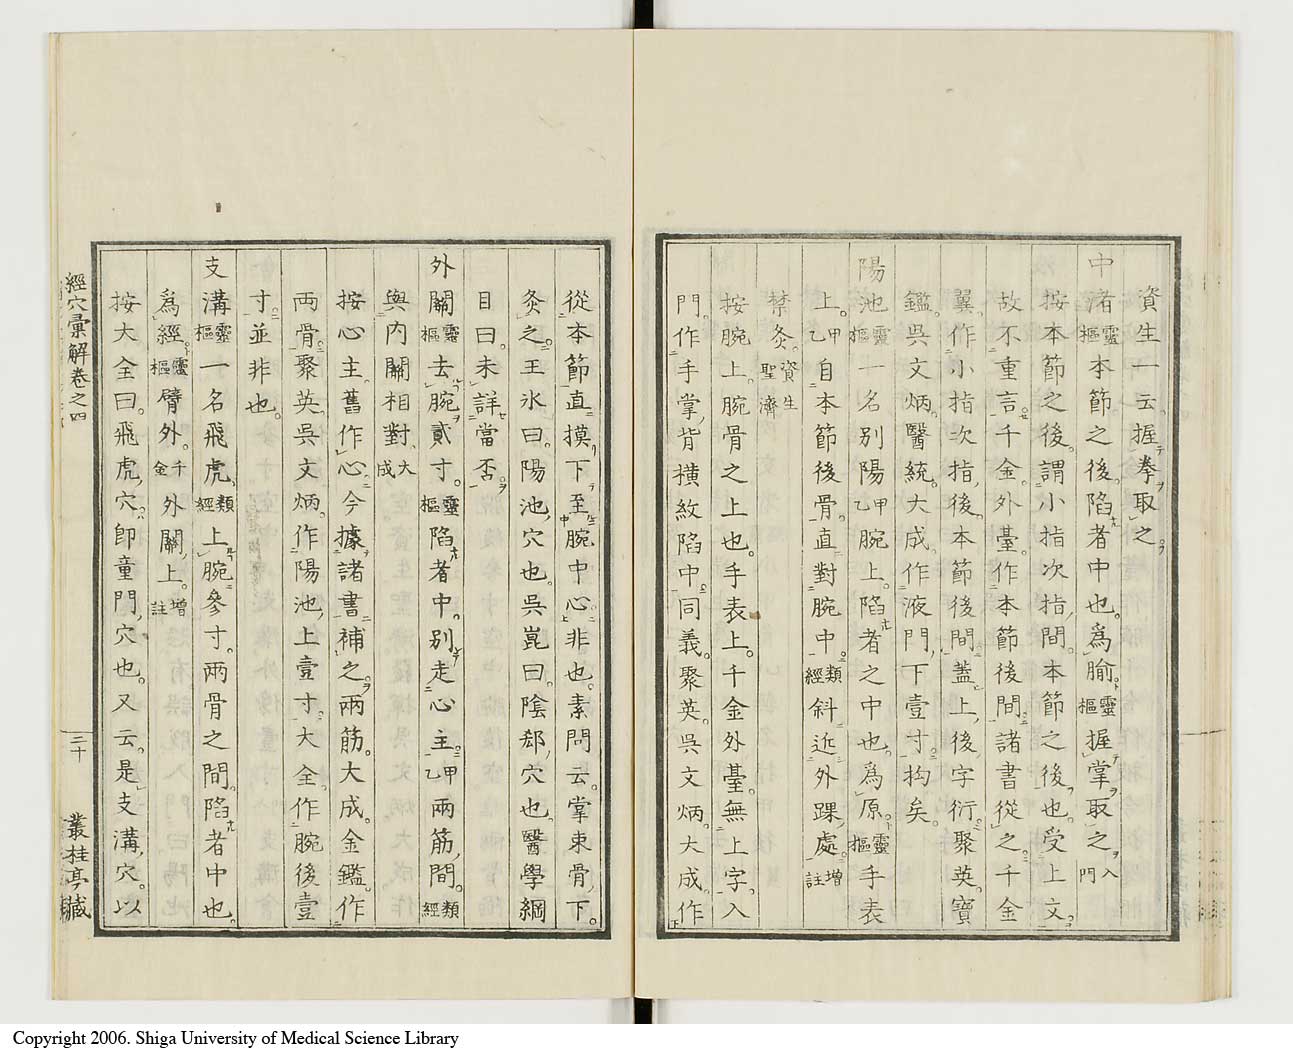 資生一云。握拳取之。
中渚靈樞本節之後。陷者中也。為腧。靈樞握掌取之。入門
按本節之後。謂小指次指間。本節之後也。受上文。
故不重言。千金。外臺。作本節後間。諸書從之。千金
翼。作小指次指後。本節後間。蓋上後字衍。聚英。寶
鑑。吳文炳。醫統。大成。作液門下壹寸。拘矣。
陽池靈樞一名別陽。甲乙腕上。陷者之中也。為原。靈樞手表
上。甲乙自本節後骨。直對腕中。類經斜近外踝處。增註
禁灸。資生聖濟
按腕上。腕骨之上也。手表上。千金外臺。無上字。入
門。作手掌背橫紋陷中。同義。聚英。吳文炳。大成。作
從本節直摸下至腕中心。非也。素問云。掌束骨下。
灸之。王冰曰。陽池穴也。吳崑曰。陰郄穴也。醫學綱
目曰。未詳當否。
外關靈樞去腕貳寸。靈樞陷者中。別走心主。甲乙兩筋間。類經
與內關相對。大成
按心主。舊作心。今據諸書補之。兩筋。大成。金鑑。作
兩骨。聚英。吳文炳。作陽池上壹寸。大全。作腕後壹
寸。並非也。
支溝靈樞一名飛虎。類經上腕參寸。兩骨之間。陷者中也。
為經。靈樞臂外。千金外關上。增註
按大全曰。飛虎穴。即童門穴也。又云。是支溝穴。以
經穴彙解卷之四
三十
叢桂亭藏
Copyright 2006. Shiga University of Medical Science Library